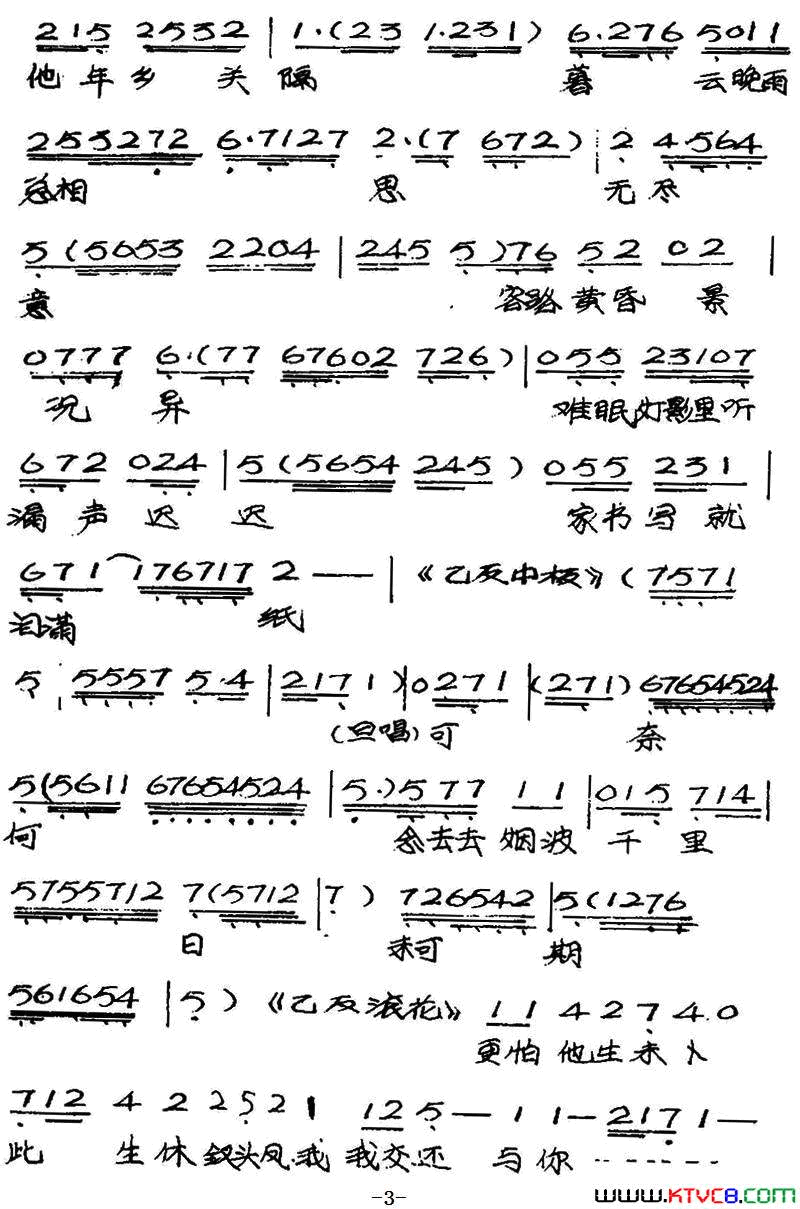 215 2532 | 1.(23 1.231) 6.276 5011
他年乡关隔 暮云晚雨
253272 6.7127 2.(7 672) | 2 4.564
总相思 无尽
5(5653 2204 | 245 5)76 52 02 |
意 客路黄昏景
0777 6.(77 67602 726) | 055 23107
况异 难眠灯影里听
672 024 | 5(5654 245) 055 231 |
漏声迟迟 家书写就
671 176717 2 —— | 《乙反中板》(7571
泪满纸
5 5557 5.4 | 2171) | 0271 | (271) 67654524
(旦唱)可奈
5(5611 67654524 | 5.)577 11 | 015 714 |
何 念去去烟波千里
5755712 7(5712 | 7) 726542 | 5(1276
日 未可期
561654 | 5) 《乙反滚花》 11 4 2 7 4.0
更怕他生未卜
712 4 2 2521 12 5— 11— 2171—
此生休 钗头凤.我我交还与你--------
-3-
www.KTVC8.com